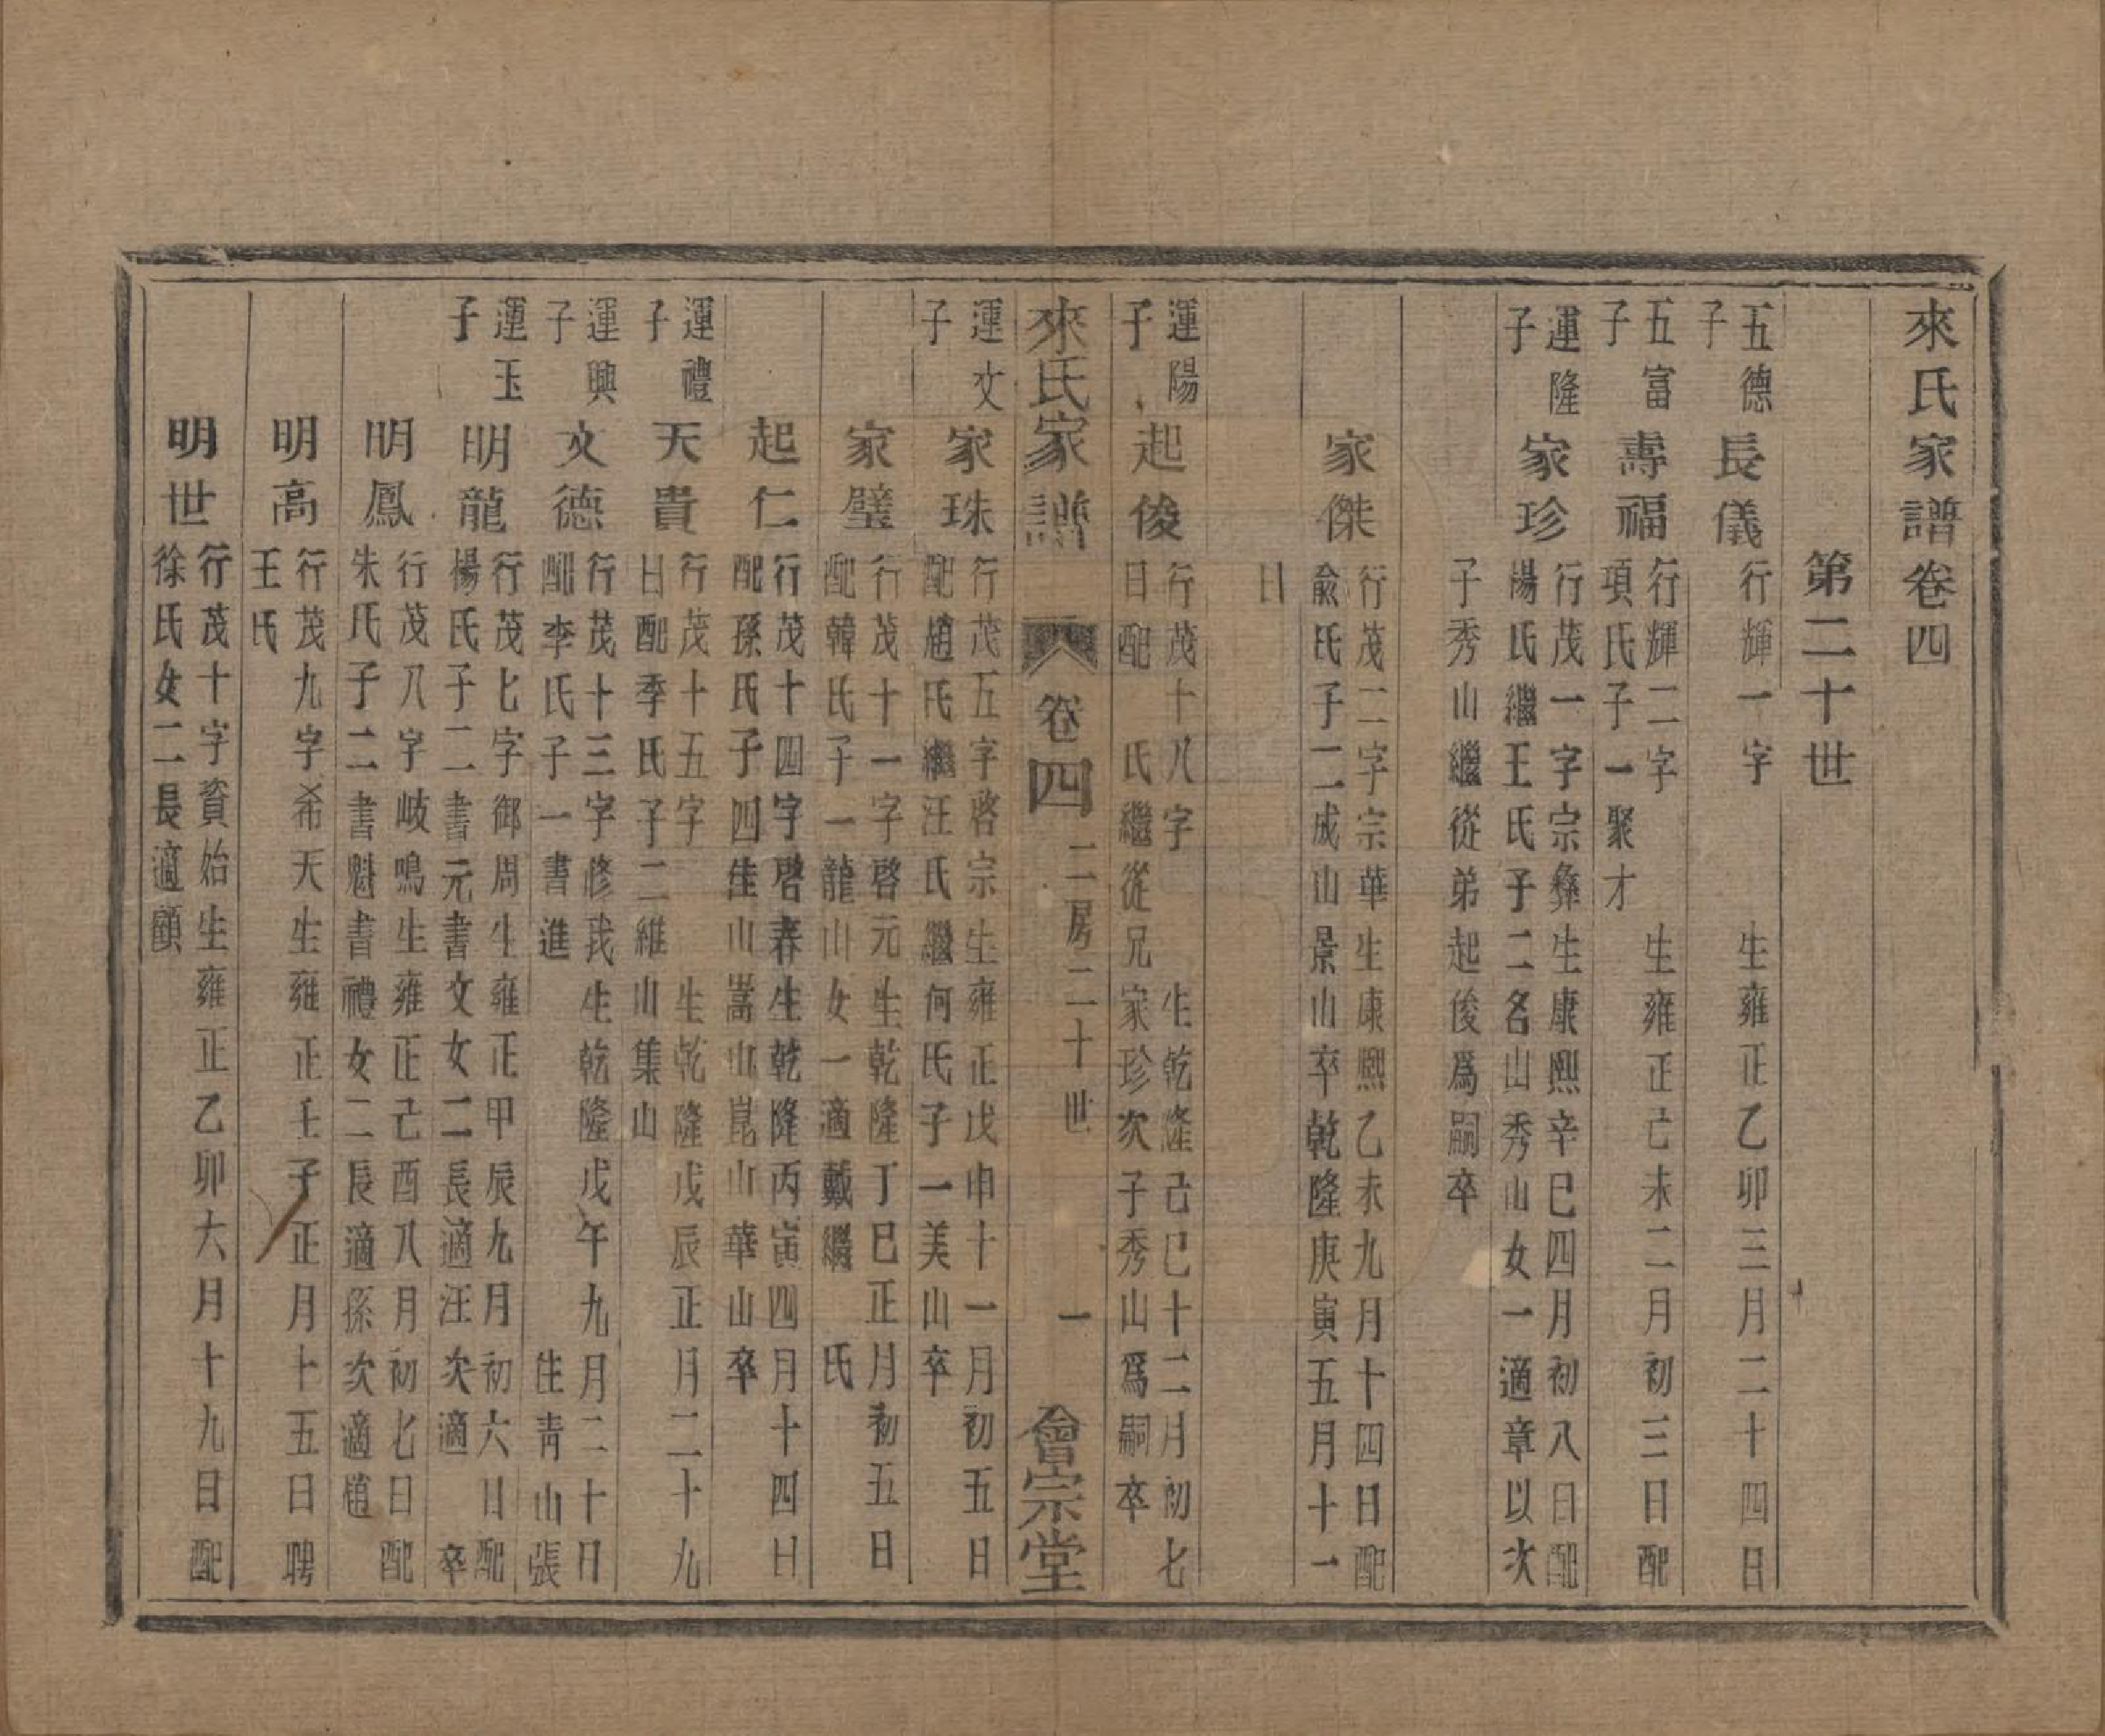 來氏家譜卷四
第二十世
五德子
長儀
行輝一字 生雍正乙卯三月二十四日
五富子
壽福
行輝二字 生雍正己未二月初三日配
項氏子一聚才
運隆子
家珍
行茂一字宗彝生康熙辛巳四月初八日配
楊氏繼王氏子二名山秀山女一適章以次
子秀山繼從弟起俊爲嗣卒
家傑
行茂二字宗華生康熙乙未九月十四日配
俞氏子二成山景山卒乾隆庚寅五月十一
日
運陽子
起俊
行茂十八字 生乾隆己巳十二月初七
日配 氏繼從兄家珍次子秀山爲嗣卒
來氏家譜 卷四 二房二十世 一 會宗堂
運文子
家珠
行茂五字啓宗生雍正戊申十一月初五日
配趙氏繼汪氏繼何氏子一美山卒
家璧
行茂十一字啓元生乾隆丁巳正月初五日
配韓氏子一龍山女一適戴繼 氏
起仁
行茂十四字啓春生乾隆丙寅四月十四日
配孫氏子四佳山嵩山崑山華山卒
運禮子
天貴
行茂十五字 生乾隆戊辰正月二十九
日配季氏子二維山集山
運興子
文德
行茂十三字修我生乾隆戊午九月二十日
配李氏子一書進 住青山張
運玉子
明龍
行茂七字御周生雍正甲辰九月初六日配
楊氏子二書元書文女二長適汪次適 卒
明鳳
行茂八字岐鳴生雍正己酉八月初七日配
朱氏子二書魁書禮女二長適孫次適趙
明高
行茂九字希天生雍正壬子正月十五日聘
王氏
明世
行茂十字資始生雍正乙卯六月十九日配
徐氏女二長適顧